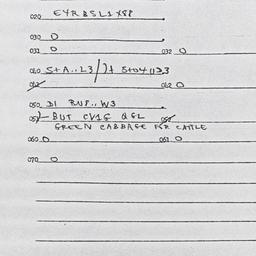 020 EYRBSL1X88
030 O
031 O 032 O
040 S+A..L3/)+ S+04 1133
042 O
050 DI RUP.. W3
051 - BUT CV1G Q GL
GREEN CABBAGE FOR CATTLE
060 O 061 O
070 O